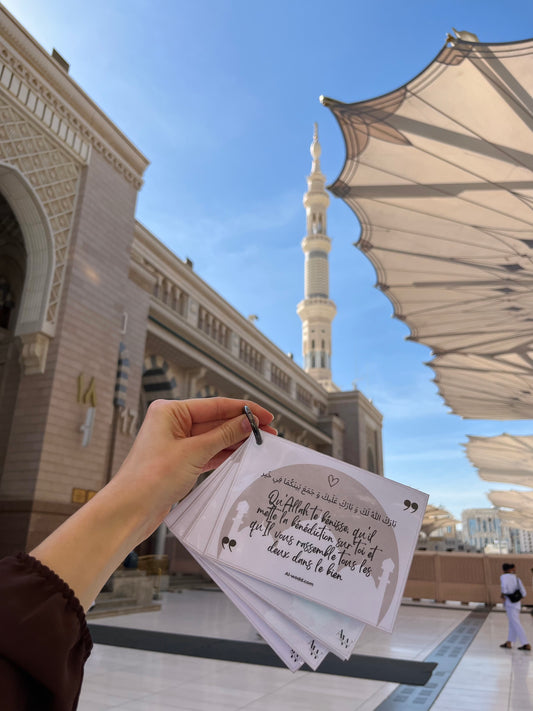 بَارَكَ اللهُ لَكَ وَ بَارَكَ عَلَيْكَ وَ جَمَعَ بَيْنَكُمَا فِي خَيْر
Qu'Allah te bénisse, qu'il
mette la bénédiction sur toi et
qu'Il vous rassemble tous les
deux dans le bien
Al-walid.com